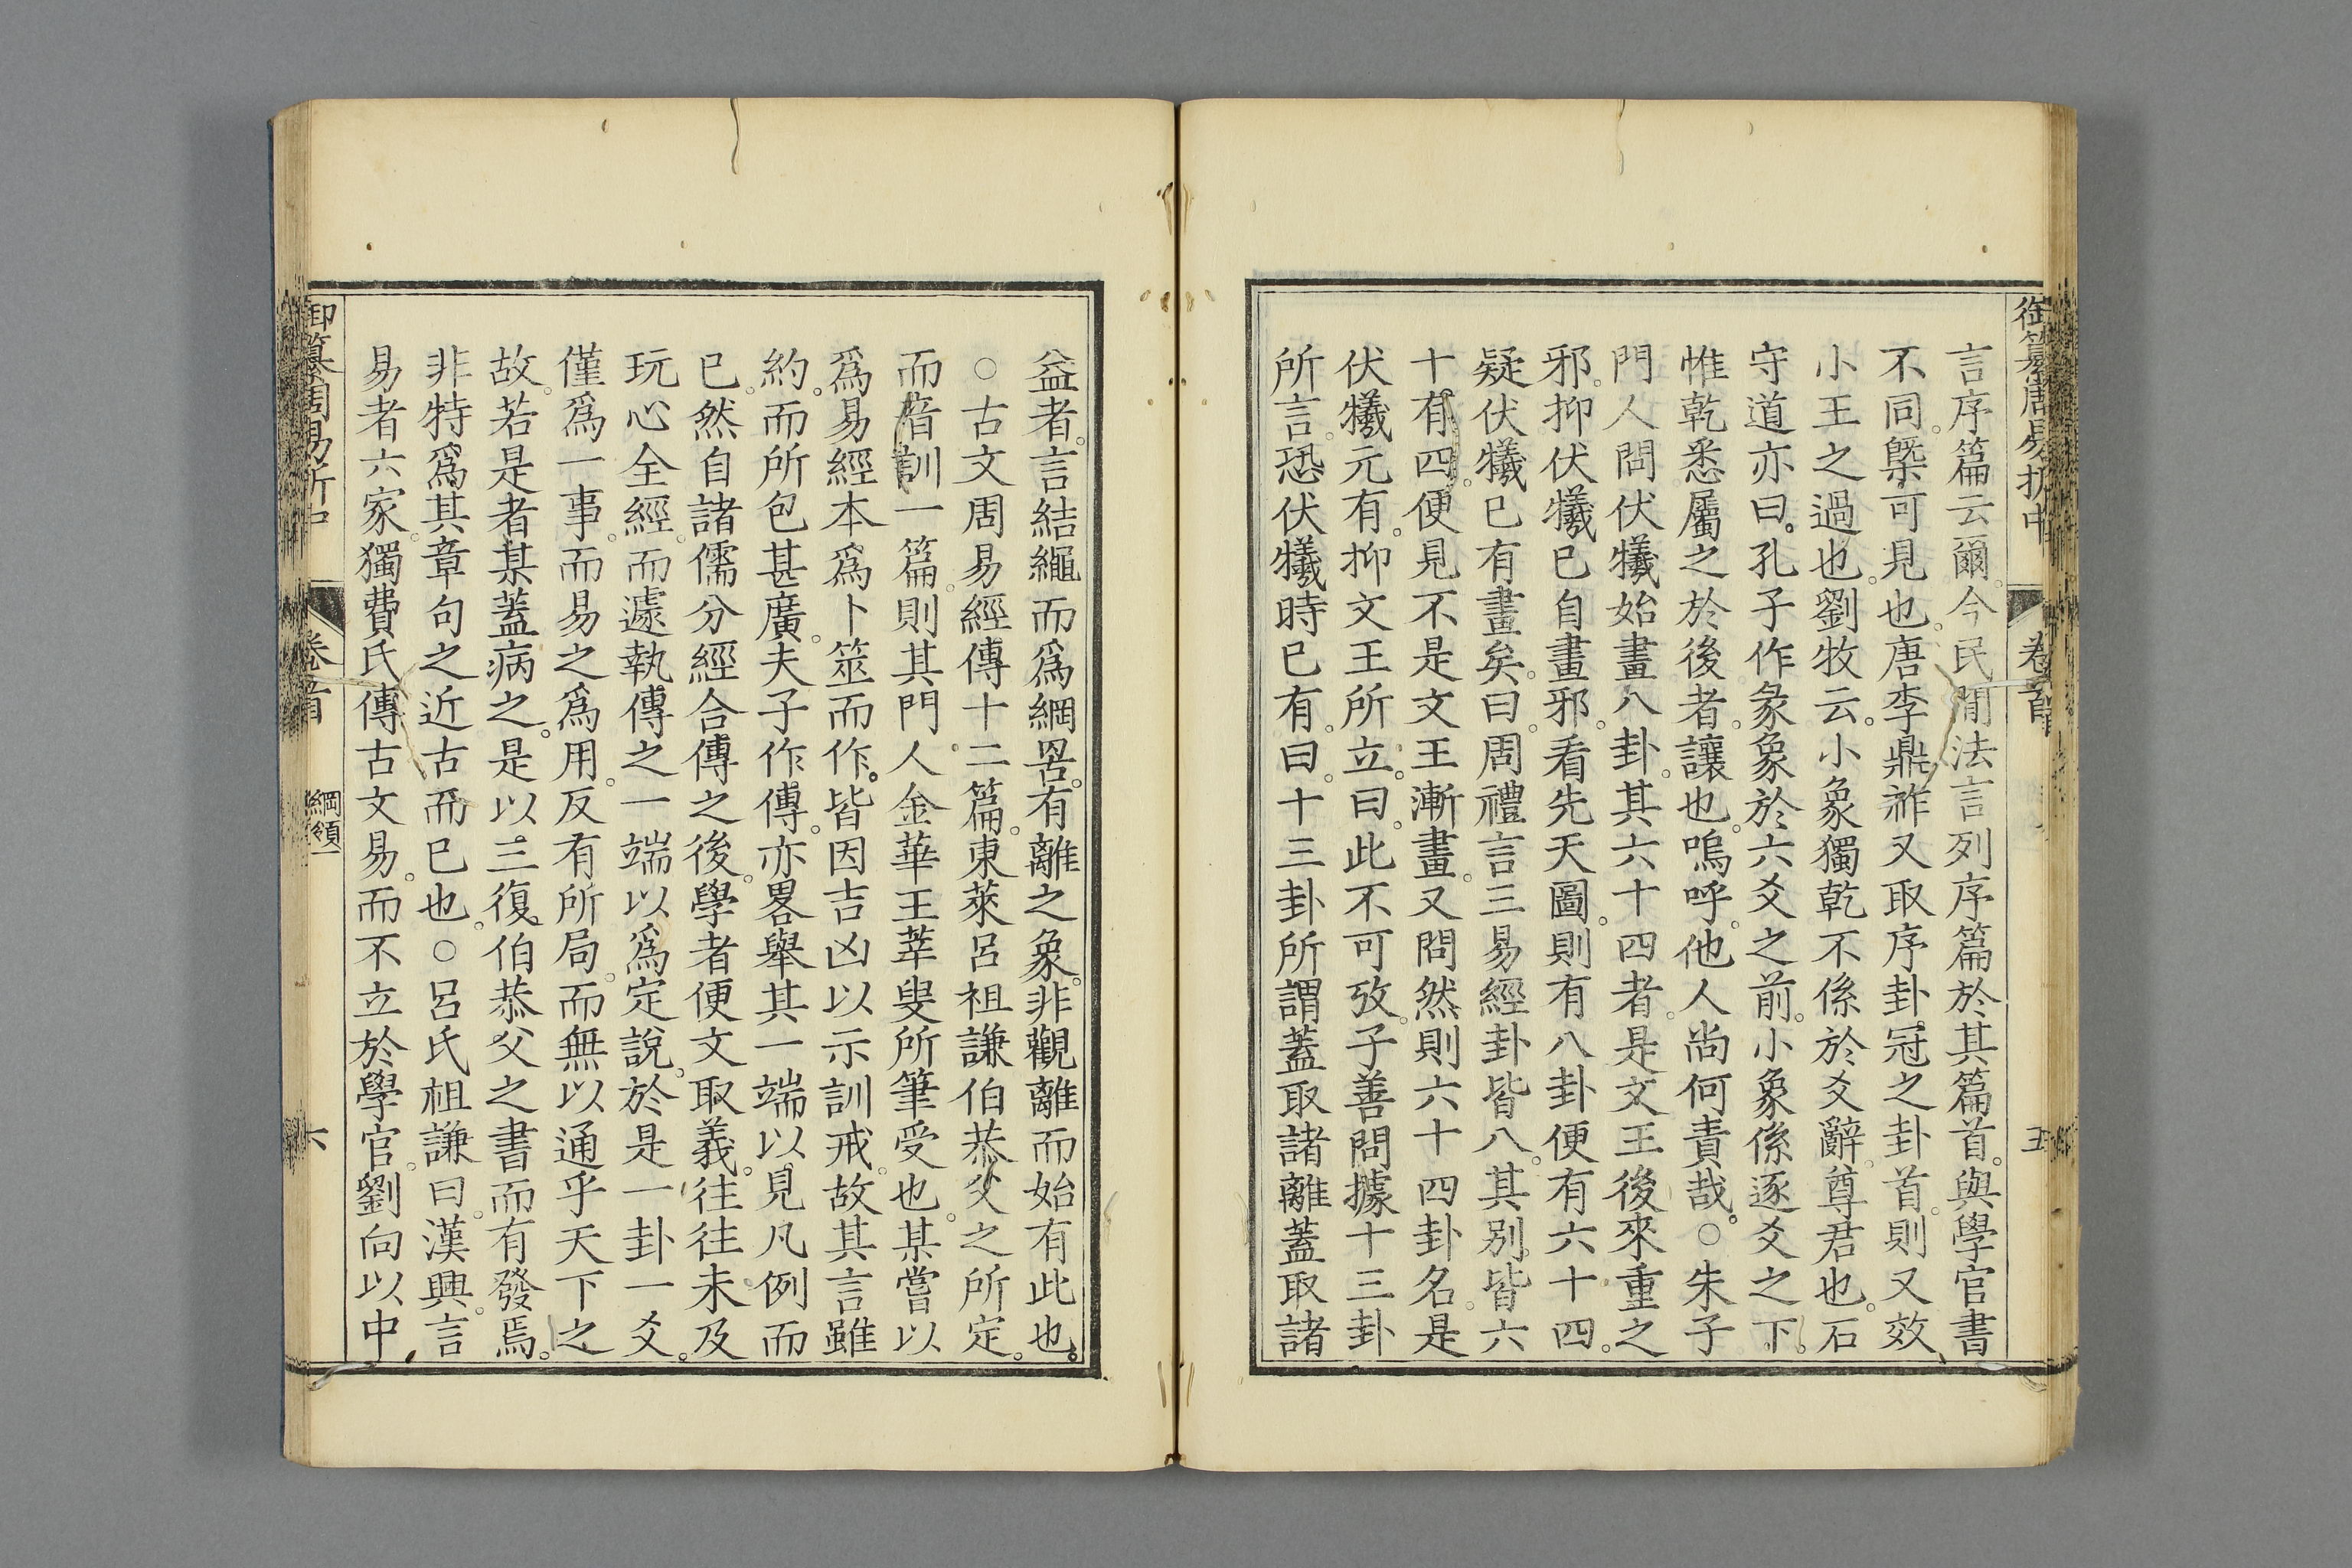 御纂周易折中
卷首
五
言序篇云爾今民閒法言列序篇於其篇首與學官書
不同槩可見也唐李鼎祚又取序卦冠之卦首則又效
小王之過也劉牧云小象獨乾不係於爻辭尊君也石
守道亦曰孔子作彖象於六爻之前小象係逐爻之下
惟乾悉屬之於後者讓也嗚呼他人尚何責哉○朱子
門人問伏犧始畫八卦其六十四者是文王後來重之
邪抑伏犧已自畫邪看先天圖則有八卦便有六十四
疑伏犧已有畫矣曰周禮言三易經卦皆八其別皆六
十有四便見不是文王漸畫又問然則六十四卦名是
伏犧元有抑文王所立曰此不可攷子善問據十三卦
所言恐伏犧時已有曰十三卦所謂蓋取諸離蓋取諸
益者言結繩而爲網罟有離之象非觀離而始有此也
○古文周易經傳十二篇東萊呂祖謙伯恭父之所定
而音訓一篇則其門人金華王莘叟所筆受也某嘗以
爲易經本爲卜筮而作皆因吉凶以示訓戒故其言雖
約而所包甚廣夫子作傳亦畧舉其一端以見凡例而
已然自諸儒分經合傳之後學者便文取義往往未及
玩心全經而遽執傳之一端以爲定說於是一卦一爻
僅爲一事而易之爲用反有所局而無以通乎天下之
故若是者某蓋病之是以三復伯恭父之書而有發焉
非特爲其章句之近古而已也○呂氏祖謙曰漢興言
易者六家獨費氏傳古文易而不立於學官劉向以中
御纂周易折中
卷首
綱領一
六